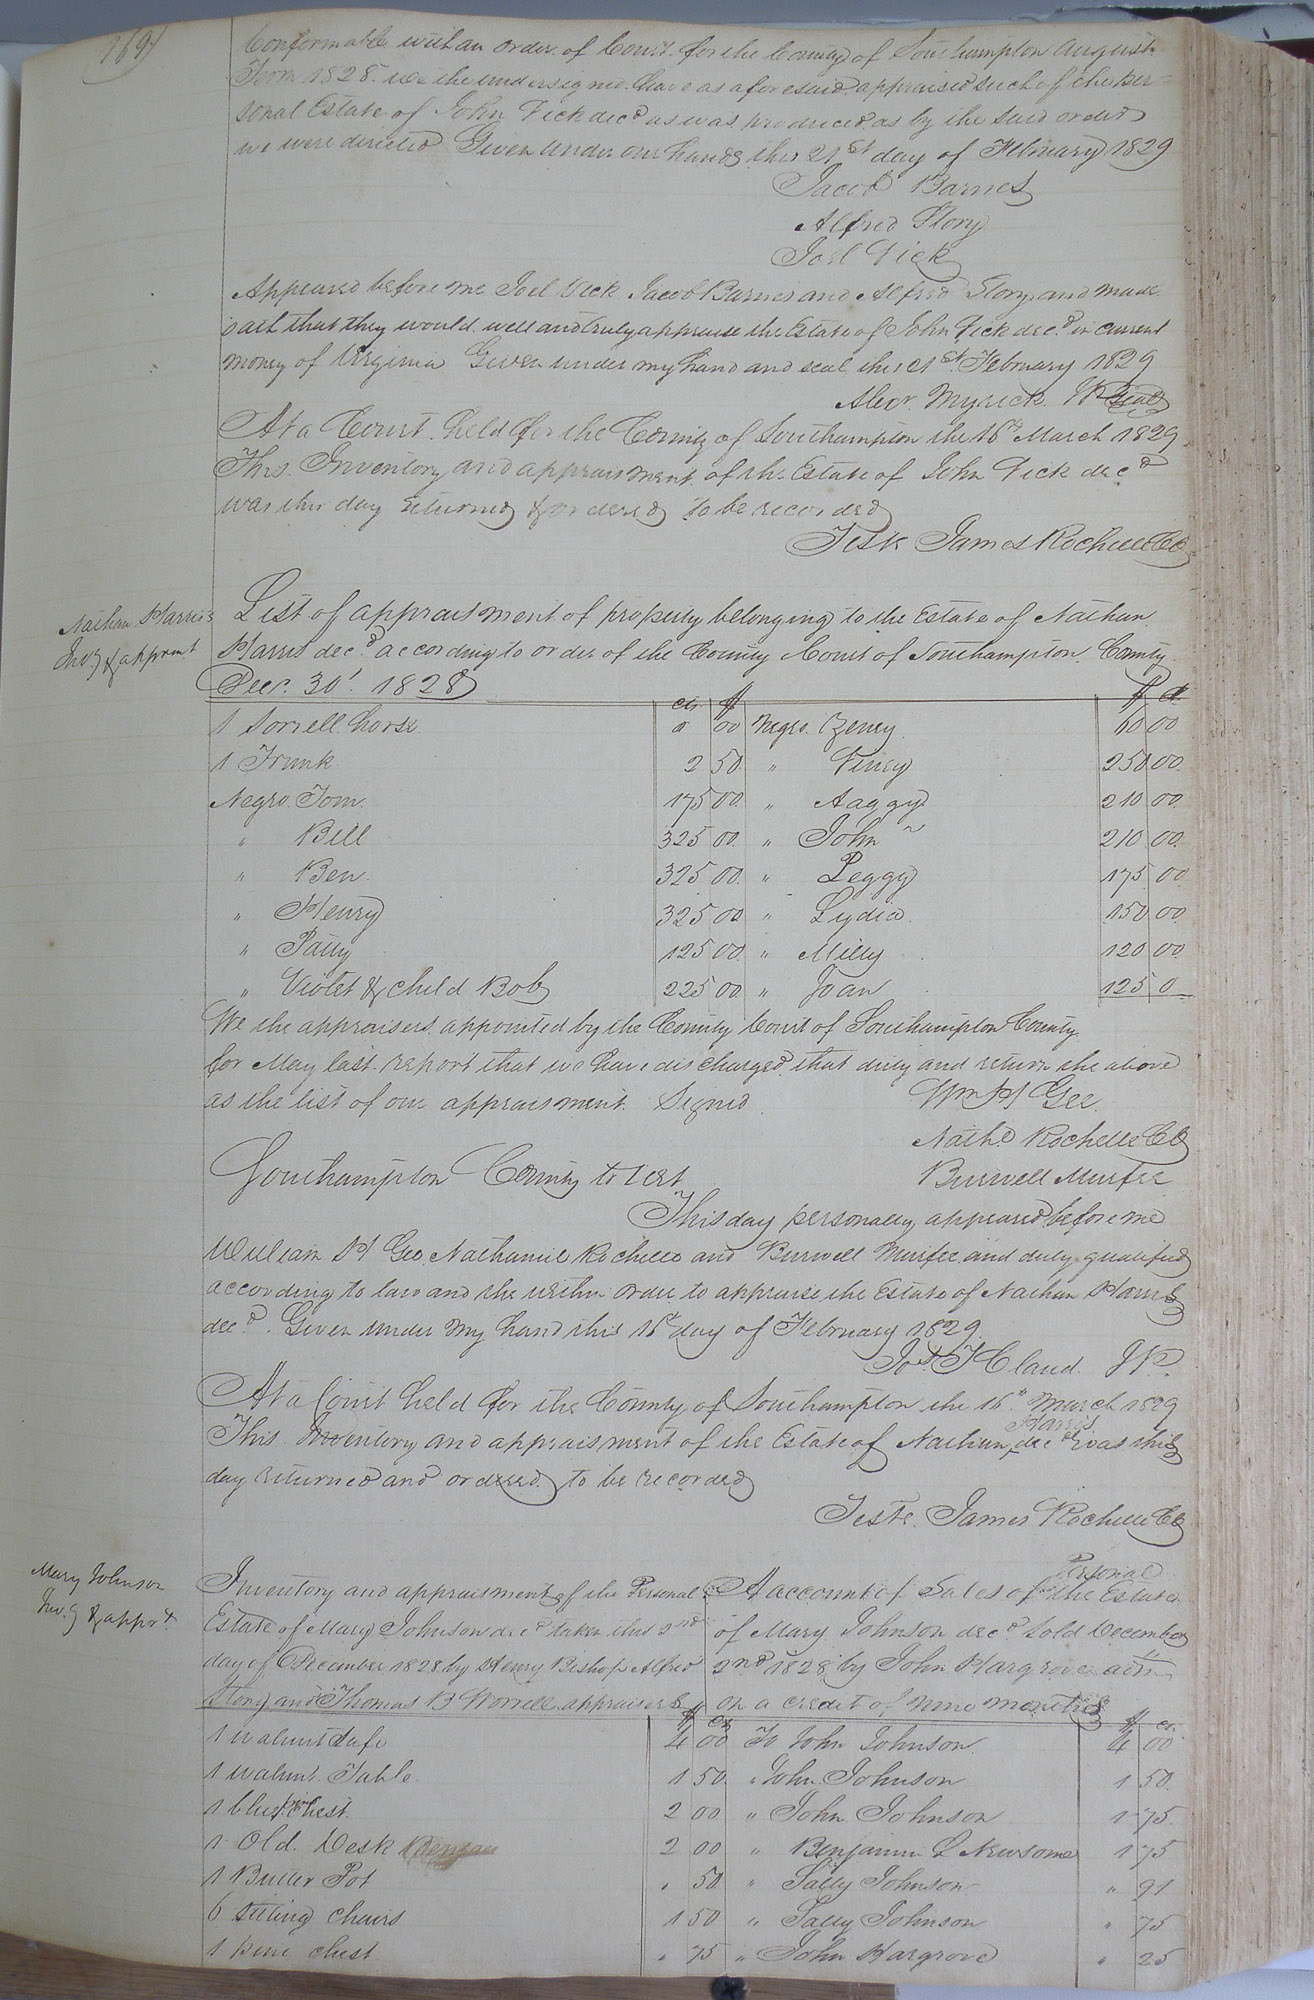 169
Conformable with an order of Court for the County of Southampton August
Term 1828. we the undersigned have as aforesaid appraised such of the per=
sonal Estate of John Vick decd as was produced as by the said order
we were directed Given under our hands this 21st day of February 1829
Jacob Barnes
Alfred Story
Joel Vick
Appeared before me Joel Vick Jacob Barnes and Alfred Story and made
oath that they would well and truly appraise the Estate of John Vick decd in current
money of Virginia Given under my hand and seal this 21st February 1829
Alexr. Myrick JP Seal
At a Court held for the County of Southampton the 16th March 1829
This Inventory and appraisment of the Estate of John Vick decd
was this day returned & ordered to be recorded
Teste James Rochelle CC
Nathan Harris
Invy & apprmt
List of appraisment of property belonging to the Estate of Nathan
Harris decd according to order of the County Court of Southampton County
Decr. 30' 1828
cts $ $ ct
1 Sorrell horse 0 00 Negro 60 00
1 Trunk 2 50 " Viney 250 00
Negro Tom 175 00 " Aaggy 210 00
" Bill 325 00 " John 210 00
" Ben 325 00 " Peggy 175 00
" Henry 325 00 " Lydia 150 00
" Patty 125 00 " Milly 120 00
" Violet & child Bob 225 00 " Joan 125 0
We the appraisers appointed by the County Court of Southampton County
for May last report that we have discharged that duty and return the above
as the list of our appraisment Signed Wm H Gee
Nathl Rochelle CC
Southampton County to wit Burwell Murfee
This day personally appeared before me
William H Gee Nathaniel Rochelle and Burwell Murfee and duly qualified
according to law and the within order to appraise the Estate of Nathan Harris
decd. Given under my hand this 16th day of February 1829
Jos T Claud JP.
At a Court held for the County of Southampton the 16th March 1829
Harris
This Inventory and appraisment of the Estate of Nathan decd was this
day returned and ordered to be recorded
Teste James Rochelle CC
Mary Johnson
Inv.y & apprt
Inventory and appraisment of the Personal
Estate of Mary Johnson decd taken this 2nd
day of December 1828 by Henry Bishop Alfred
Story and Thomas B Worrell appraisers
Personal
A account of Sales of the Estate
of Mary Johnson decd Sold December
2nd 1828 by John Hargrove adm
on a credit of nine months
$ cts $ cs
1 walnut Safe 4 00 To John Johnson 4 00
1 walnut Table 1 50 " John Johnson 1 50
1 blue chest 2 00 " John Johnson 1 75
1 Old Desk 2 00 " Benjamin D Newsome 1 75
1 Butter Pot " 50 " Sally Johnson " 91
6 sitting chairs 1 50 " Sally Johnson " 75
1 pine chest " 75 " John Hargrove " 25